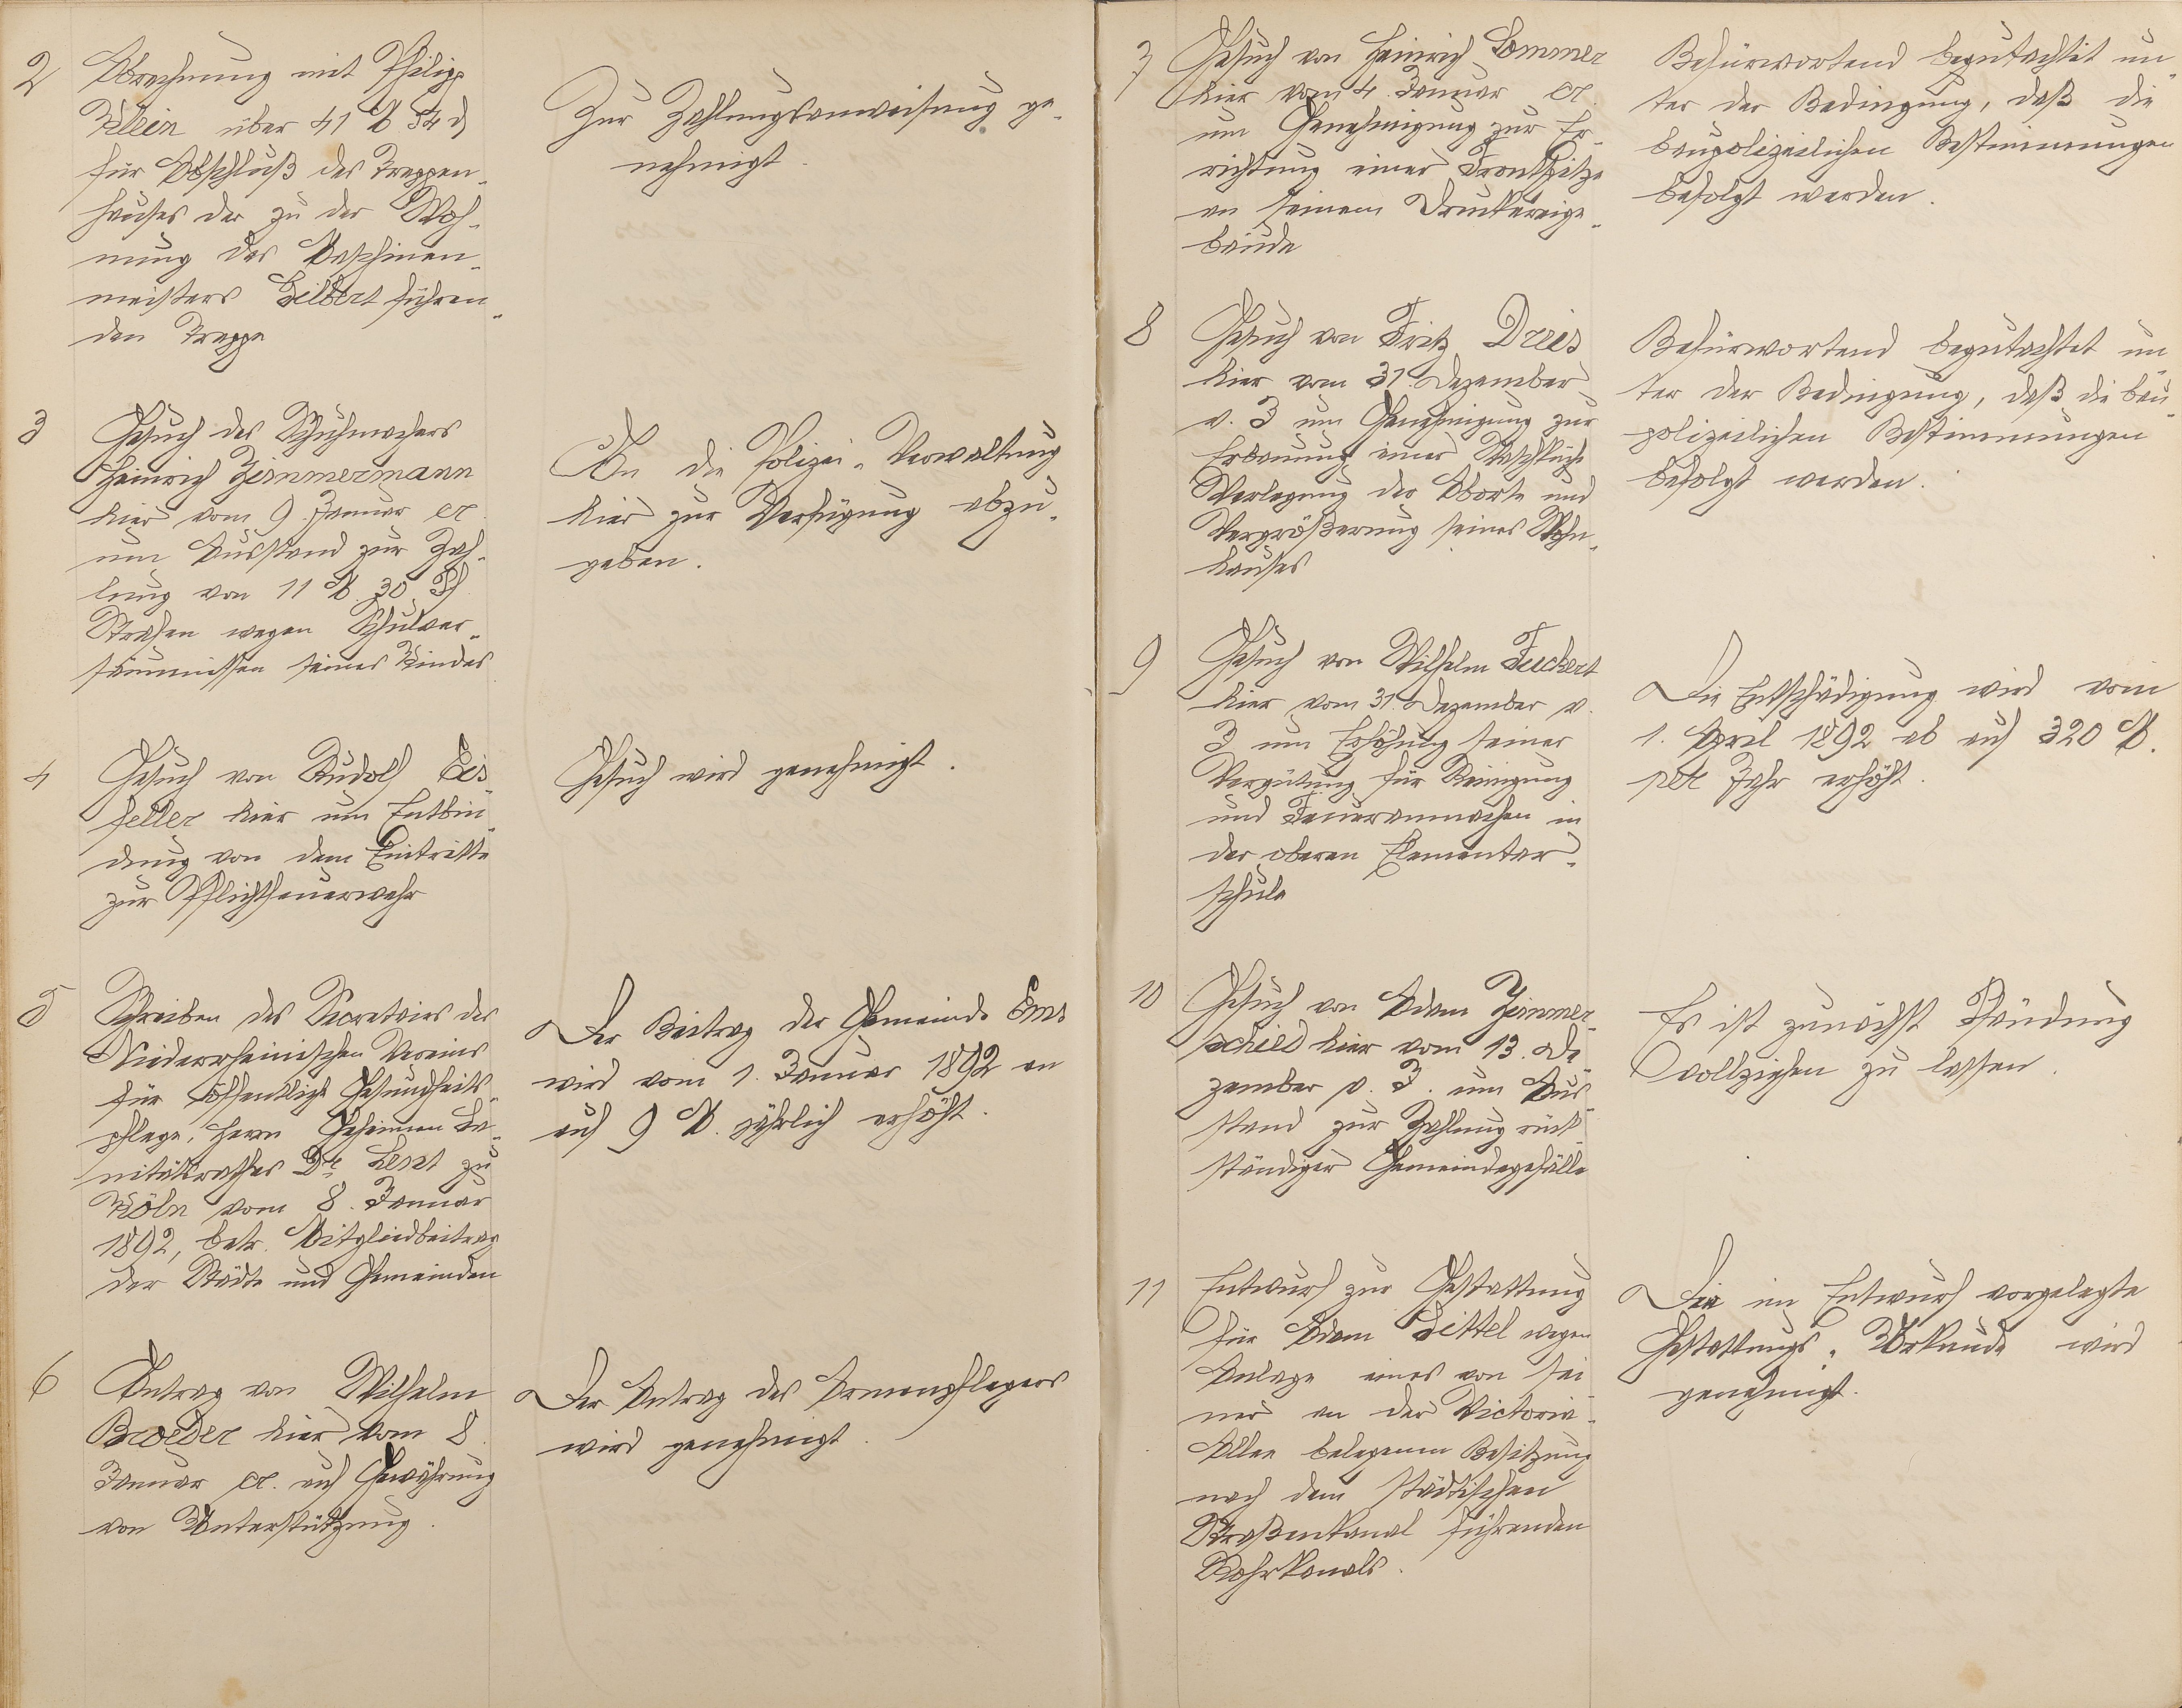 2
Abrechnung mit Philipp
Klein über 41 M 54 d
für Abschluß des Treppen-
hauses der zu der Woh-
nung des Maschinen-
meisters Gilbert führen-
den Treppe
Zur Zahlungsanweisung ge-
nehmigt.
3
Gesuch des Schuhmachers
Heinrich Zimmermann
hier vom 9 Januar cr.
um Ausstand zur Zah-
lung von 11 M. 30 Pf
Strafen wegen Schulver-
säumnissen seines Kindes
An die Polizei-Verwaltung
hier zur Verfügung abzu-
geben.
4
Gesuch von Rudolf Eis-
feller hier um Entbin-
dung von dem Eintritte
zur Pflichtfeuerwehr
Gesuch wird genehmigt.
5
Schreiben des Secretairs des
Niederrheinischen Vereins
für öffentliche Gesundheits-
pflege, Herrn Geheimen Sa-
nitätsrathes Dr. Lent zu
Köln vom 8. Januar
1892, betr. Mitgliedbeitrag
der Städte und Gemeinden
Der Beitrag der Gemeinde Ems
wird vom 1. Januar 1892 an
auf 9 M. jährlich erhöht.
6
Antrag von Wilhelm
Broeder hier vom 8.
Januar cr. auf Gewährung
von Unterstützung.
Der Antrag des Armenpflegers
wird genehmigt.
7
Gesuch von Heinrich Sommer
hier vom 4. Januar cr.
um Genehmigung zur Er-
richtung einer Frontspitze
an seinem Druckereige-
bäude
Befürwortend begutachtet un-
ter der Bedingung, daß die
baupolizeilichen Bestimmungen
befolgt werden.
8
Gesuch von Fritz Drees
hier vom 31. Dezember
v. J um Genehmigung zur
Erbauung einer Waschküche
Verlegung der Aborte und
Vergrößerung seines Wohn-
hauses
Befürwortend begutachtet un-
ter der Bedingung, daß die bau-
polizeilichen Bestimmungen
befolgt werden.
9
Gesuch von Wilhelm Feickert
hier vom 31. Dezember v.
J um Erhöhung seiner
Vergütung für Reinigung
und Feueranmachen in
der oberen Elementar-
schule
Die Entschädigung wird vom
1. April 1892 ab auf 320 M.
per Jahr erhöht.
10
Gesuch von Adam Zimmer-
schied hier vom 13. De-
zember v. J. um Aus-
stand zur Zahlung rück-
ständiger Gemeindegefälle
Es ist zunächst Pfändung
vollziehen zu lassen.
11
Entwurf zur Gestattung
für Adam Dittel wegen
Anlage eines von sei-
ner an der Victoria-
Allee belegenen Besitzung
nach dem städtischen
Straßenkanal führenden
Rohrkanals.
Die im Entwurf vorgelegte
Gestattungs-Urkunde wird
genehmigt.